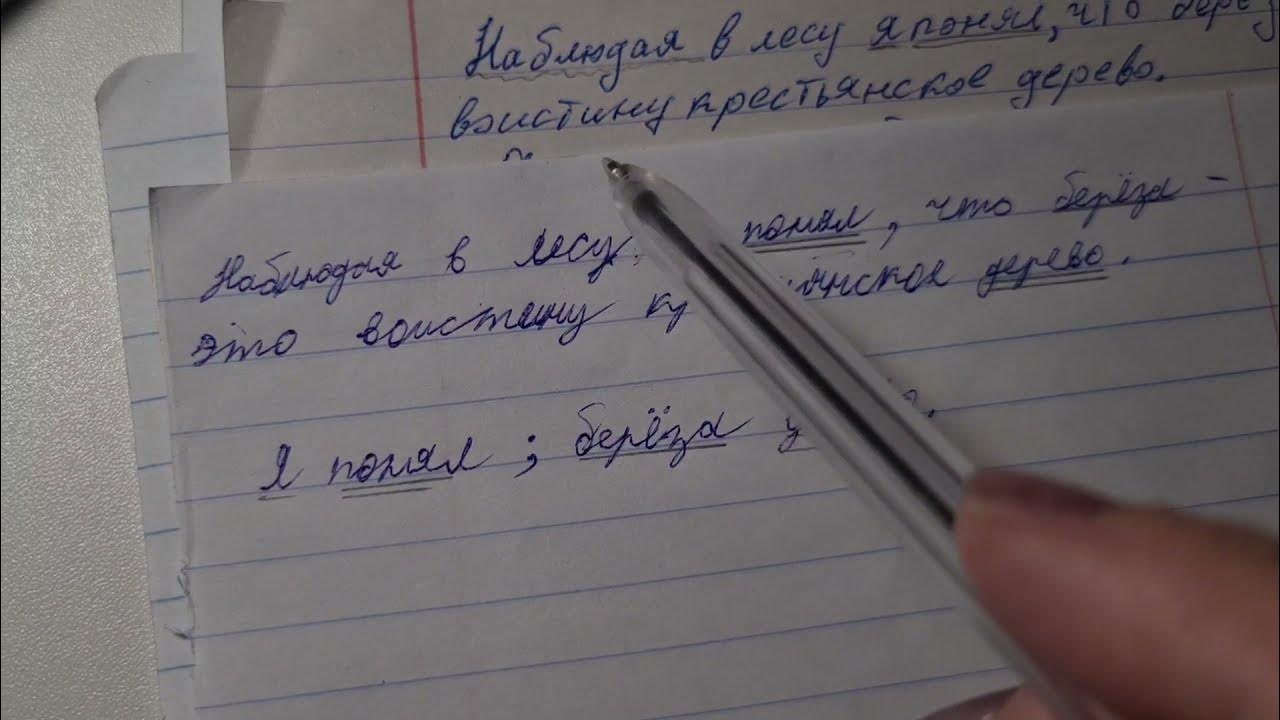 Наблюдая в лесу я понял, что
воистину крестьянское дерево.
Наблюдая в лесу понял, что берёза -
это воистину дерево.
Я понял ; берёза